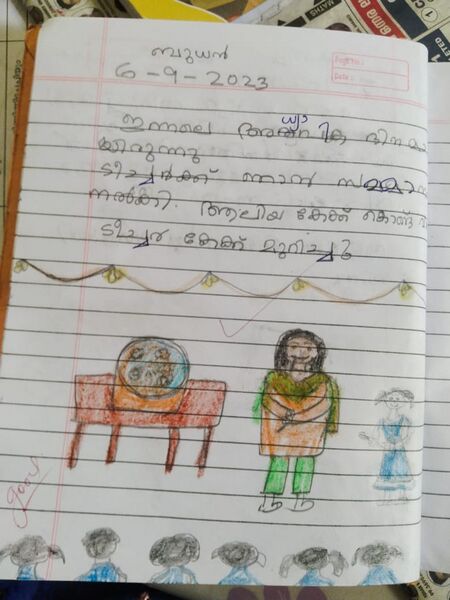 ബുധൻ
6-9-2023
Page No.:
Date:
ഇന്നലെ അദ്ധ്യാപിക ദിനമാ
യിരുന്നു
ടീച്ചർക്ക് ഞാൻ സമ്മാന
നൽകി. ആലിയ കേക്ക് കൊണ്ട്
ടീച്ചർ കേക്ക് മുറിച്ചു
good